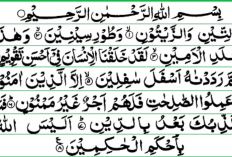 بِسْمِ اللهِ الرَّحْمٰنِ الرَّحِيْمِ
التِّيْنِ وَالزَّيْتُوْنِ ۙ وَطُوْرِ سِيْنِيْنَ ۙ وَهٰذَ
لَدِ الْاَمِيْنِ ۙ لَقَدْ خَلَقْنَا الْاِنْسَانَ فِيْٓ اَحْسَنِ تَقْوِيْمٍ
مَّ رَدَدْنٰهُ اَسْفَلَ سٰفِلِيْنَ ۙ اِلَّا الَّذِيْنَ اٰمَنُوْا
عَمِلُوا الصّٰلِحٰتِ فَلَهُمْ اَجْرٌ غَيْرُ مَمْنُوْنٍ
يُكَذِّبُكَ بَعْدُ بِالدِّيْنِ ۙ اَلَيْسَ اللهُ
بِاَحْكَمِ الْحٰكِمِيْنَ